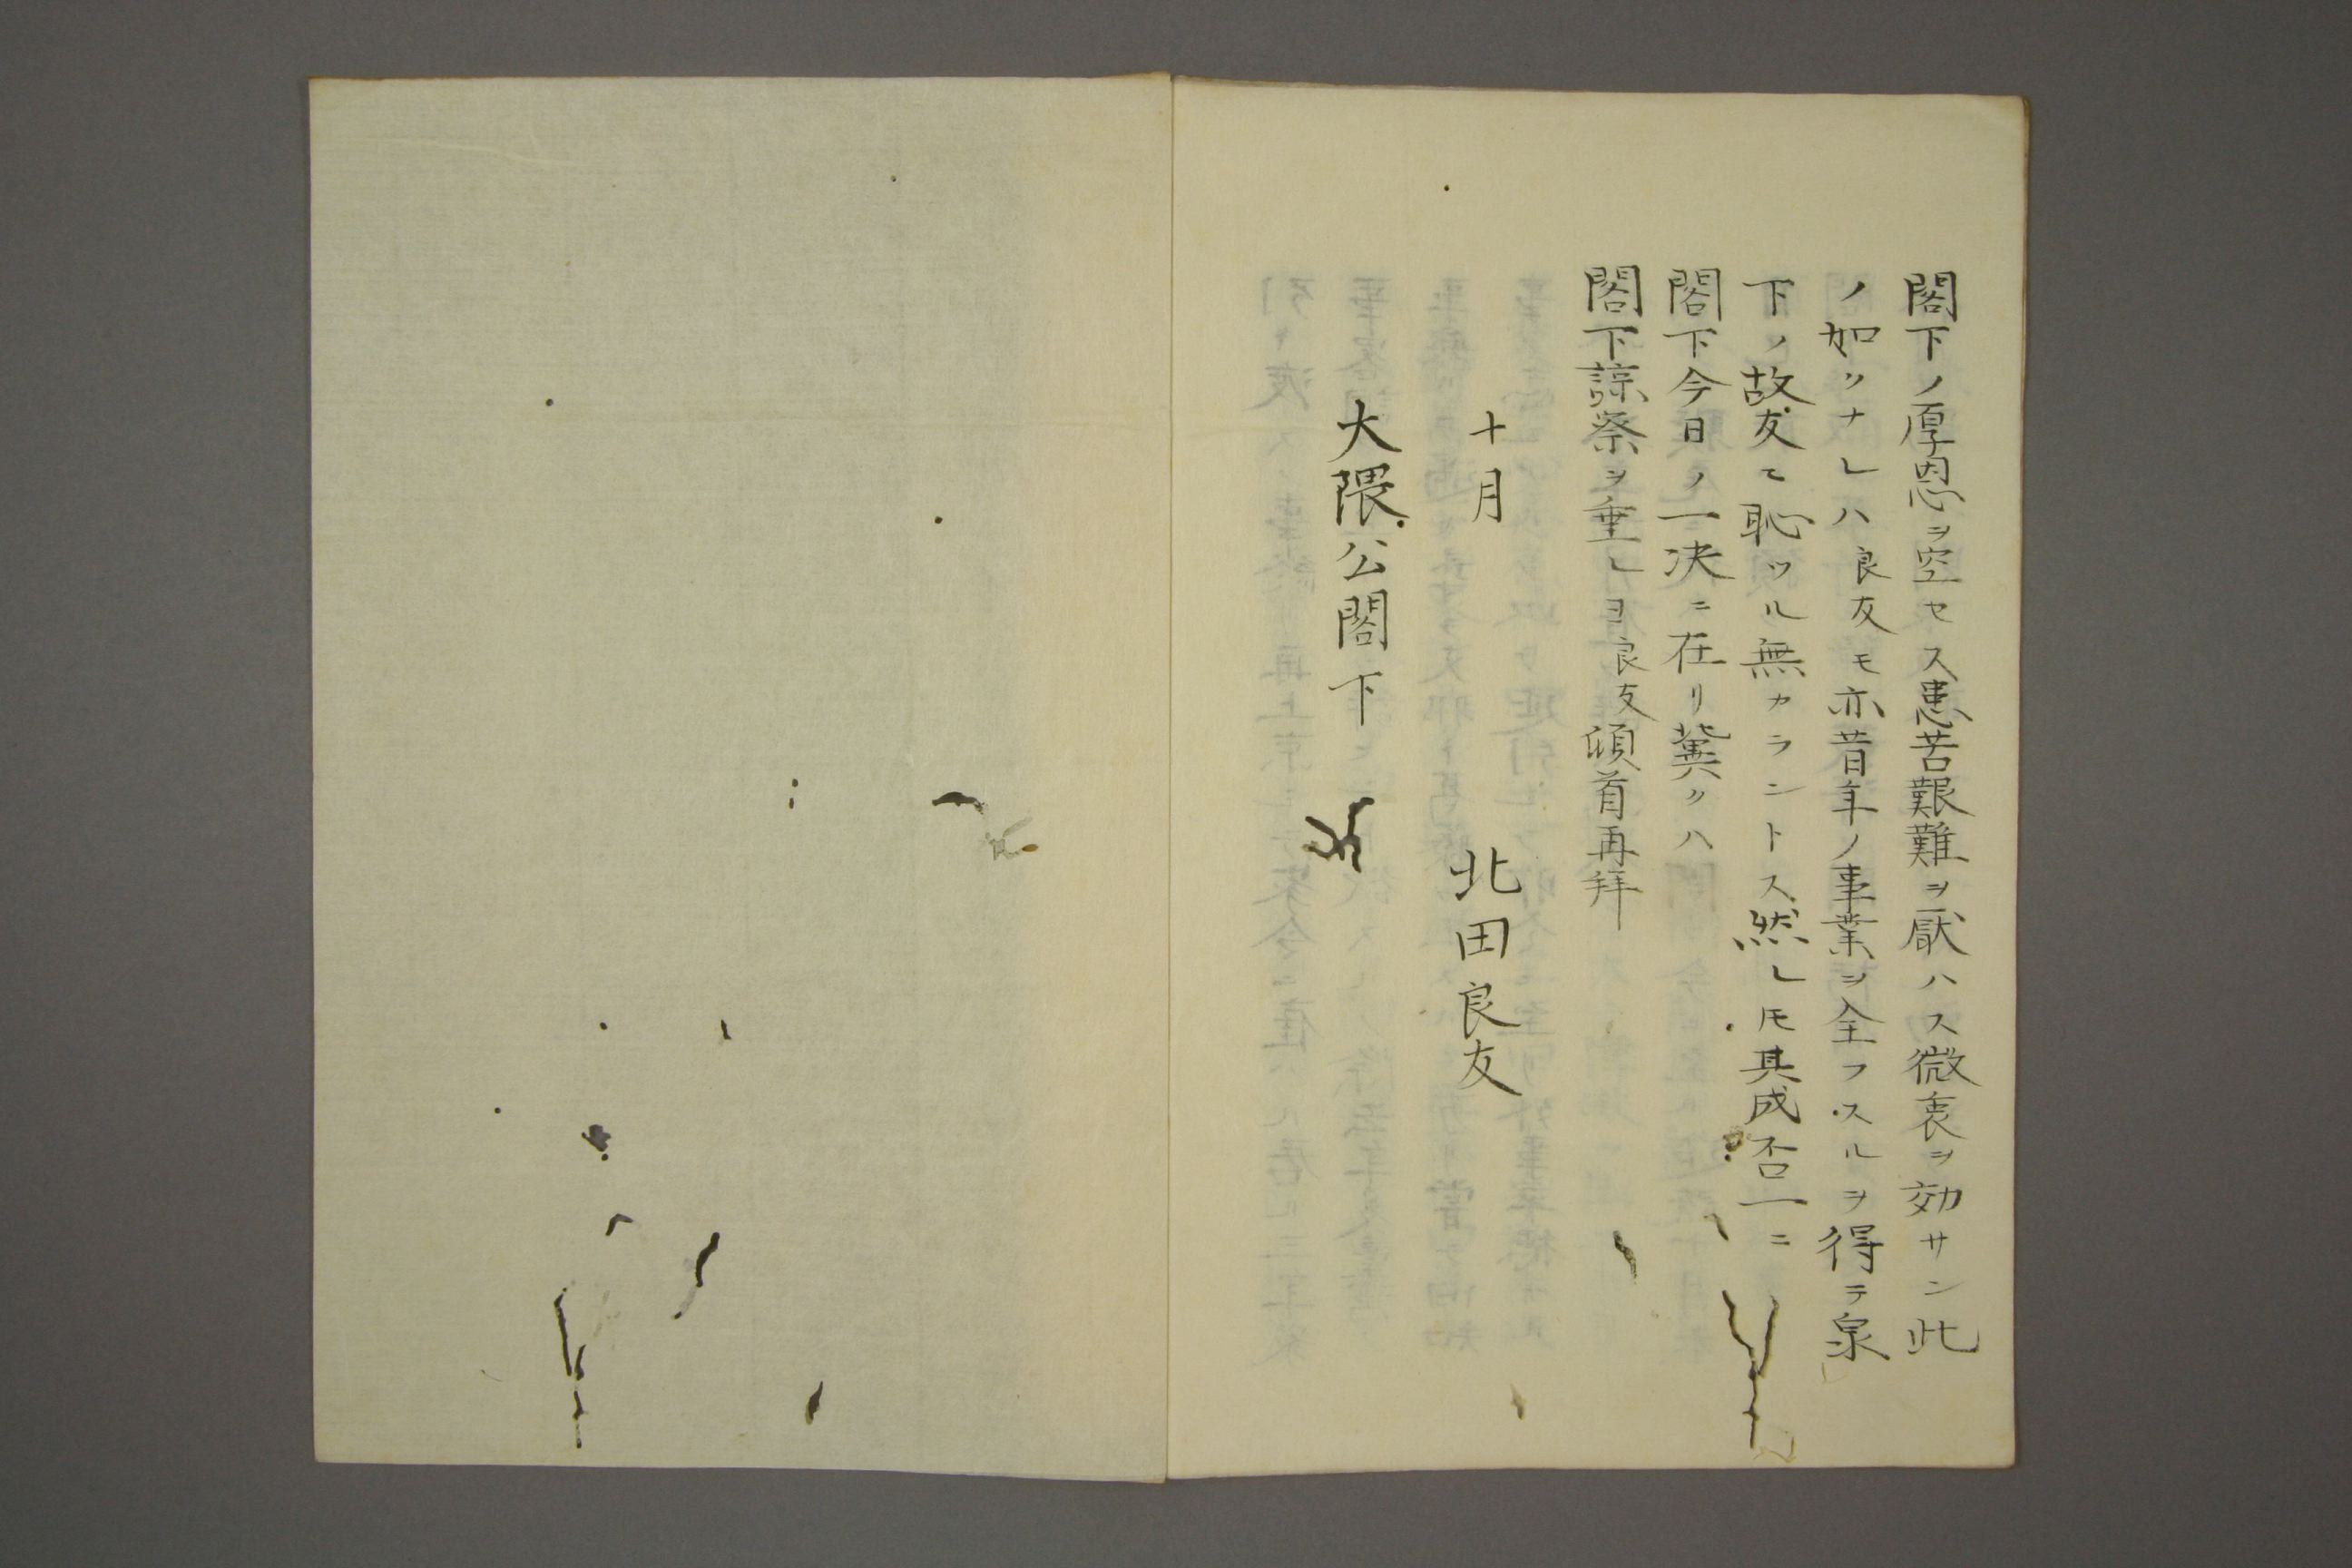 閣下ノ厚恩ヲ空セス患苦艱難ヲ厭ハス微衷ヲ効サン此
ノ如クナレハ良友モ亦昔年ノ事業ヲ全フスルヲ得テ泉
下ノ故友ニ恥ツル無カラントス然レ𪜈其成否一ニ
閣下今日ノ一决ニ在リ冀クハ
閣下諒察ヲ垂レヨ良友頓首再拜
十月
北田良友
大隈公閣下